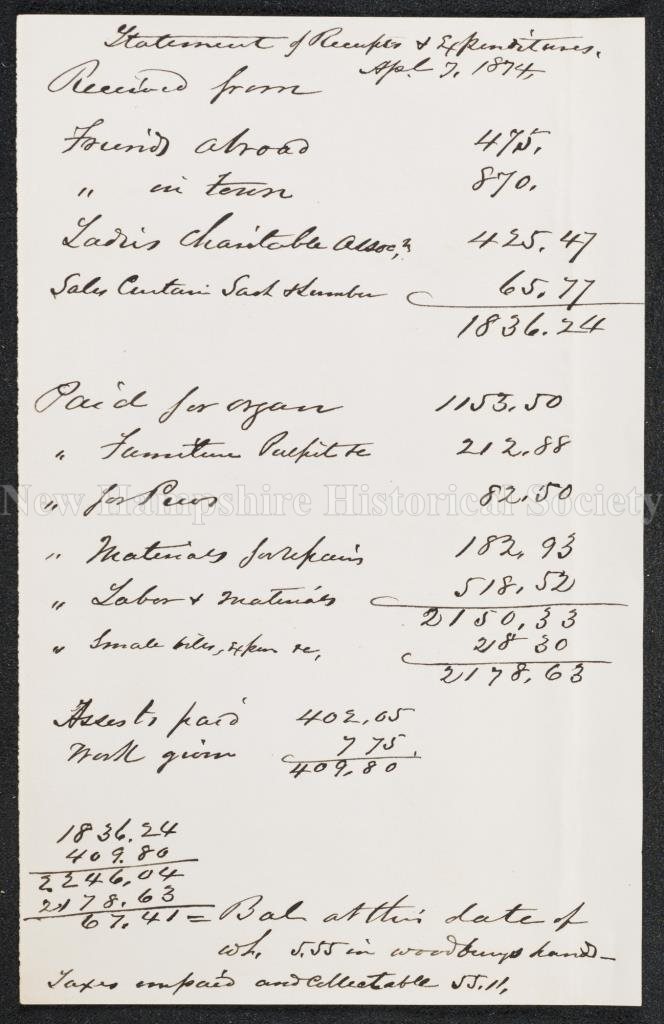 Statement of Receipts & Expenditures.
Apl. 7, 1874,
Received from
Friends abroad 475.
" in town 870.
Ladies Charitable Assoc,n 425.47
Sales Curtain Sash & Lumber 65.77
1836.24
Paid for organ 1153.50
" Furniture Pulpit &c 212.88
" for Pews 82.50
New Hampshire Historical Society
" Materials for repairs 182,93
" Labor & materials 518,52
2150,33
" Small bills, expen &c, 28 30
2178,63
Assests paid 402,05
Work given 7 75.
409,80
1836.24
409.80
2246,04
2178.63
67.41 = Bal at this date of
wh. 5.55 in woodburys hands
Taxes unpaid and collectable 55.11,